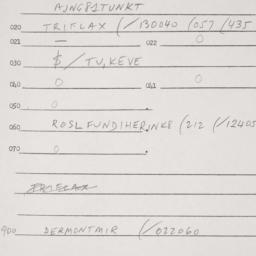 AJNG81TUNKT
020 TRIFLAX (/130040 (057 (435
021 — 022 0
030 $/TV,KEVE
040 0 041 0
050 0
060 ROSLFUNDIHER,NK8 (212 (/12405
070 0
900 DERMONTMIR (/022060